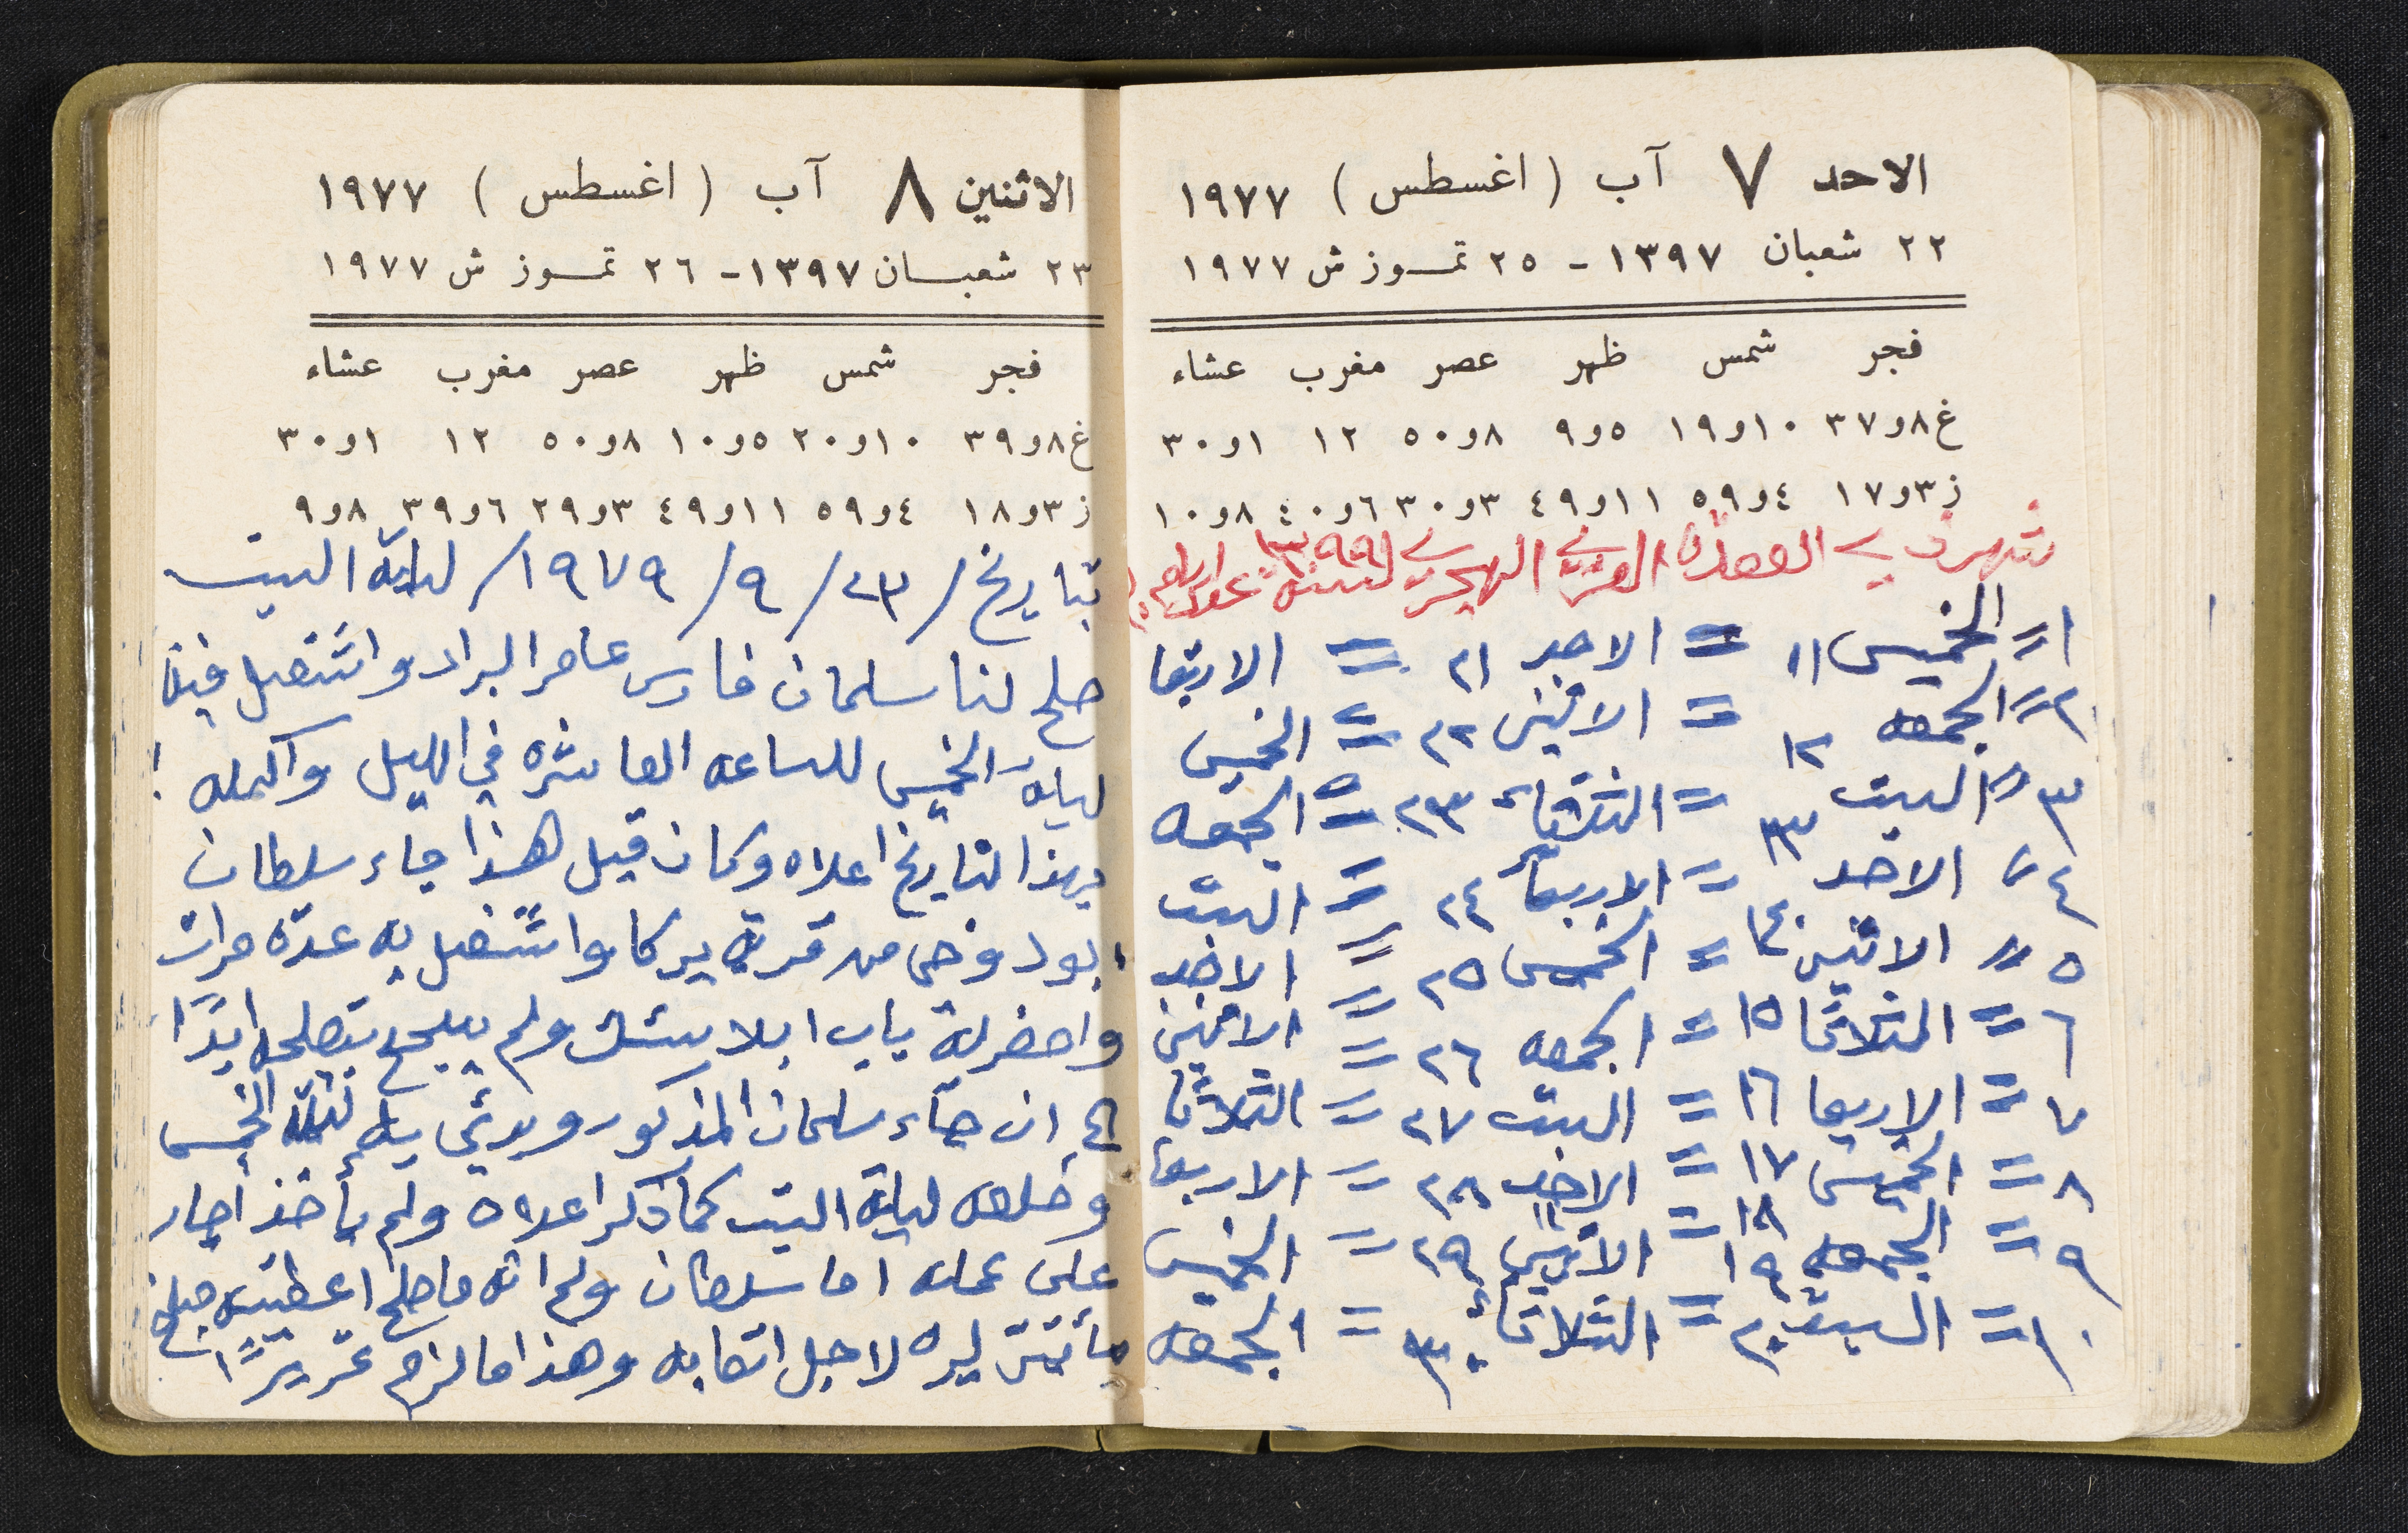 الاحد ٧ آب (اغسطس) ١٩٧٧
٢٢ شعبان ١٣٩٧ - ٢٥ تمـوز ش ١٩٧٧
فجر شمس ظهر عصر مغرب عشاء
غ ٨و٣٧ ١٠و١٩ ٥و٩ ٨و٥٠ ١٢ ١و٣٠
ز ٣و١٧ ٤و٥٩ ١١و٤٩ ٣و٣٠ ٦و٤٠ ٨و١٠
شهر ذي القعدة العربي الهجري لسنة ١٣٩٩
١ = الخميس ١١ = الاحد ٢١ = الاربعا
٢ = الجمعه ١٢ = الاثنين ٢٢ = الخميس
٣ = السبت ١٣ = الثلاثاء ٢٣ = الجمعه
٤ = الاحد ١٤ = الاربعا ٢٤ = السبت
٥ = الاثنين = الخميس ٢٥ = الاحد
٦ = الثلاثا ١٥ = الجمعه ٢٦ = الاثنين
٧ = الاربعا ١٦ = السبت ٢٧ = الثلاثا
٨ = الخميس ١٧ = الاحد ٢٨ = الاربعا
٩ = الجمعه ١٨ = الاثنين ٢٩ = الخميس
١٠ = السبت ١٩ ٢٠ = الثلاثاء ٣٠ = الجمعه
الاثنين ٨ آب (اغسطس) ١٩٧٧
٢٣ شعبـان ١٣٩٧ - ٢٦ تمـوز ش ١٩٧٧
فجر شمس ظهر عصر مغرب عشاء
غ ٨و٣٩ ١٠و٢٠ ٥و١٠ ٨و٥٠ ١٢ ١و٣٠
ز ٣و١٨ ٤و٥٩ ١١و٤٩ ٣و٢٩ ٦و٣٩ ٨و٩
بتاريخ / ٢٣ / ٩ / ١٩٧٩ / ليلة السبت
صلح لنا سلمان فارس عامر البراد واشتغل فيه
ليلة الخميس للساعه العاشره في الليل واكمله
بهذا التاريخ اعلاه وكان قبل هذا جاء سلطان
ابود وخي من قرية يركا واشتغل به عدة مرات
واحضر له باب ابلاستك ولم يتصلح ابدًا
ان جاء سلمان المذكور ليلة الخميس
وخلصه ليلة السبت كما ذكر اعلاه ولم يأخذ اجار
على عمله اما سلطان ولو انه ما صلح اعطيته مبلغ
مأتين ليره لاجل اتعابه وهذا ما لزم تحريرًا